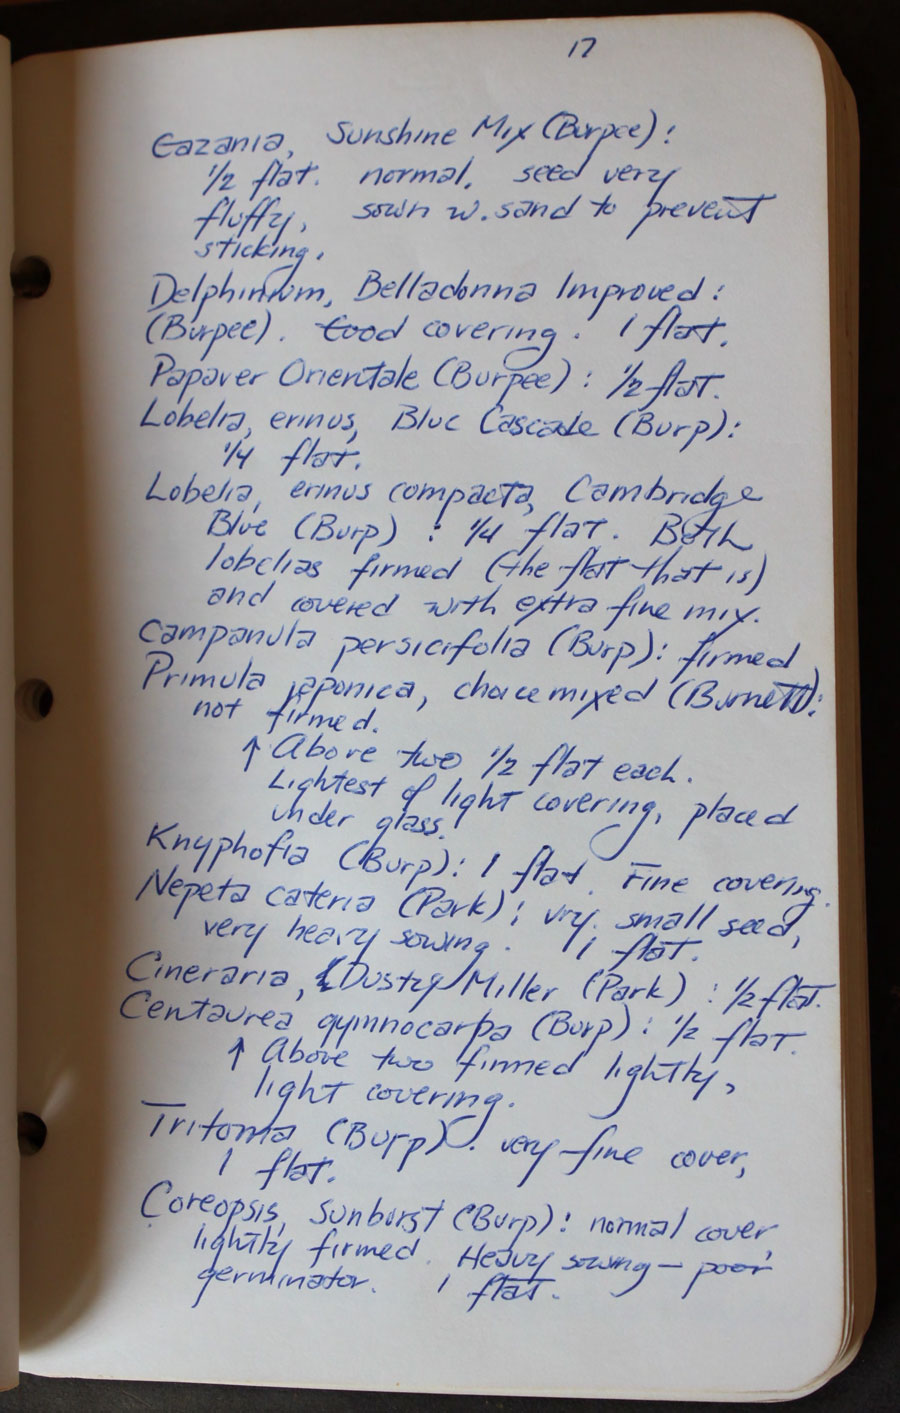 17
Gazania, Sunshine Mix (Burpee):
1/2 flat. normal, seed very
fluffy, sown w. sand to prevent
sticking.
Delphinium, Belladonna Improved:
(Burpee). Good covering. 1 flat.
Papaver Orientale (Burpee): 1/2 flat.
Lobelia, erinus, Blue Cascade (Burp):
1/4 flat.
Lobelia, erinus compacta, Cambridge
Blue (Burp) : 1/4 flat. Both
lobelias firmed (the flat that is)
and covered with extra fine mix.
Campanula persicifolia (Burp): firmed
Primula japonica, choice mixed (Burnett):
not firmed.
↑ Above two 1/2 flat each.
Lightest of light covering, placed
under glass.
Knyphofia (Burp): 1 flat. Fine covering.
Nepeta cateria (Park): vry. small seed,
very heavy sowing. 1 flat.
Cineraria, Dusty Miller (Park) : 1/2 flat.
Centaurea gymnocarpa (Burp): 1/2 flat.
↑ Above two firmed lightly,
light covering.
Tritoma (Burp). very fine cover,
1 flat.
Coreopsis, Sunburst (Burp): normal cover
lightly firmed. Heavy sowing — poor
germinator. 1 flat.